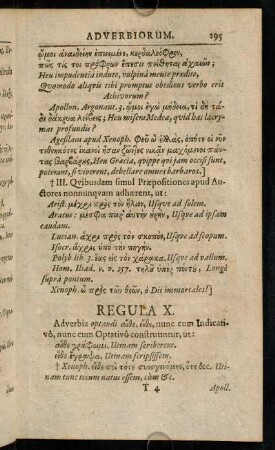 ADVERBIORUM. 295
ὤμοι ἀναιδείην ἐπιειμένε, κερδαλεόφρον,
πῶς τίς τοι πρόφρων ἔπεσιν πείθηται ἀχαιῶν;
Heu impudentiâ indute, vulpinâ mente prædite,
Quomodo aliquis tibi promptus obediens verbo erit
Achivorum?
Apollon. Argonaut. 3. ὤμοι ἐγὼ μήδεια, τί δὴ τάδε
δάκρυα λείβεις; Heu misera Medea, quid has lacrymas
profundis?
Agesilaus apud Xenoph. Φεῦ ὦ ἑλλὰς, ὁπότε οἱ νῦν
τεθνηκότες ἱκανοὶ ἦσαν ζῶντες νικᾶν μαχόμενοι πάντας
βαρβάρους, Heu Græcia, quippe qui jam occisi sunt,
potuerint, si viverent, debellare omnes barbaros.]
† III. Quibusdam simul Præpositiones apud Auctores
nonnunquam adhærent, ut:
Arist. μέχρι πρὸς τὸν ἥλιον, Usque ad solem.
Aratus: μέσφα παρ' αὐτὴν Usque ad ipsam
caudam.
Lucian. ἄχρι πρὸς τὸν σκοπὸν, Usque ad scopum.
Isocr. ἄχρι ὑπὸ τὴν πηγήν.
Polyb lib 3. ἕως εἰς τὸν χάρακα, Usque ad vallum.
Hom. Iliad. υ. υ. τηλῦ Longè
suprà pontum.
Xenoph. ὦ πρὸς τῶν θεῶν, ô Dii immortales!]
REGULA X.
Adverbia optandi αἴθε, εἴθε, nunc cum Indicativô,
nunc cum Optativô construuntur, ut:
αἴθε γράφοιμι, Utinam scriberem.
εἴθε ἔγραψα, Utinam scripsissem.
† Xenoph. εἴθε σοι τότε συνεγενόμην, ὅτε &c. Utinam
tunc tecum natus essem, cùm &c.
T 4 Apoll.